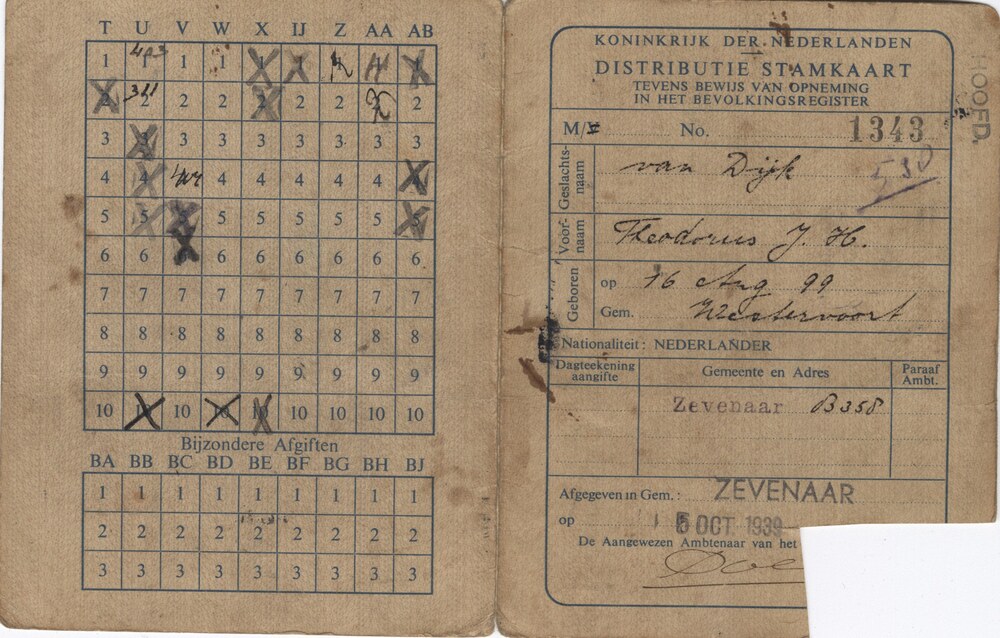 T U V W X IJ Z AA AB
1 1 1 1 1 1
2 311 2 2 2 2 2 2 2
3 3 3 3 3 3 3 3 3
4 4 4 4 4 4 4
5 5 5 5 5 5 5 5 5
6 6 6 6 6 6 6 6
7 7 7 7 7 7 7 7 7
8 8 8 8 8 8 8 8 8
9 9 9 9 9 9 9 9 9
10 10 10 10 10 10 10
Bijzondere Afgiften
BA BB BC BD BE BF BG BH BJ
1 1 1 1 1 1 1 1 1
2 2 2 2 2 2 2 2 2
3 3 3 3 3 3 3 3 3
KONINKRIJK DER NEDERLANDEN
DISTRIBUTIE STAMKAART
TEVENS BEWIJS VAN OPNEMING
IN HET BEVOLKINGSREGISTER
HOOFD.
M/V No. 1343
Geslachtsnaam van Dijk 530
Voornaam Theodorus J. H.
Geboren op 16 Aug 99
Gem. Westervoort
Nationaliteit: NEDERLANDER
Dagteekening aangifte Gemeente en Adres Paraaf Ambt.
Zevenaar B358
Afgegeven in Gem.: ZEVENAAR
op 5 OCT 1939
De Aangewezen Ambtenaar van het